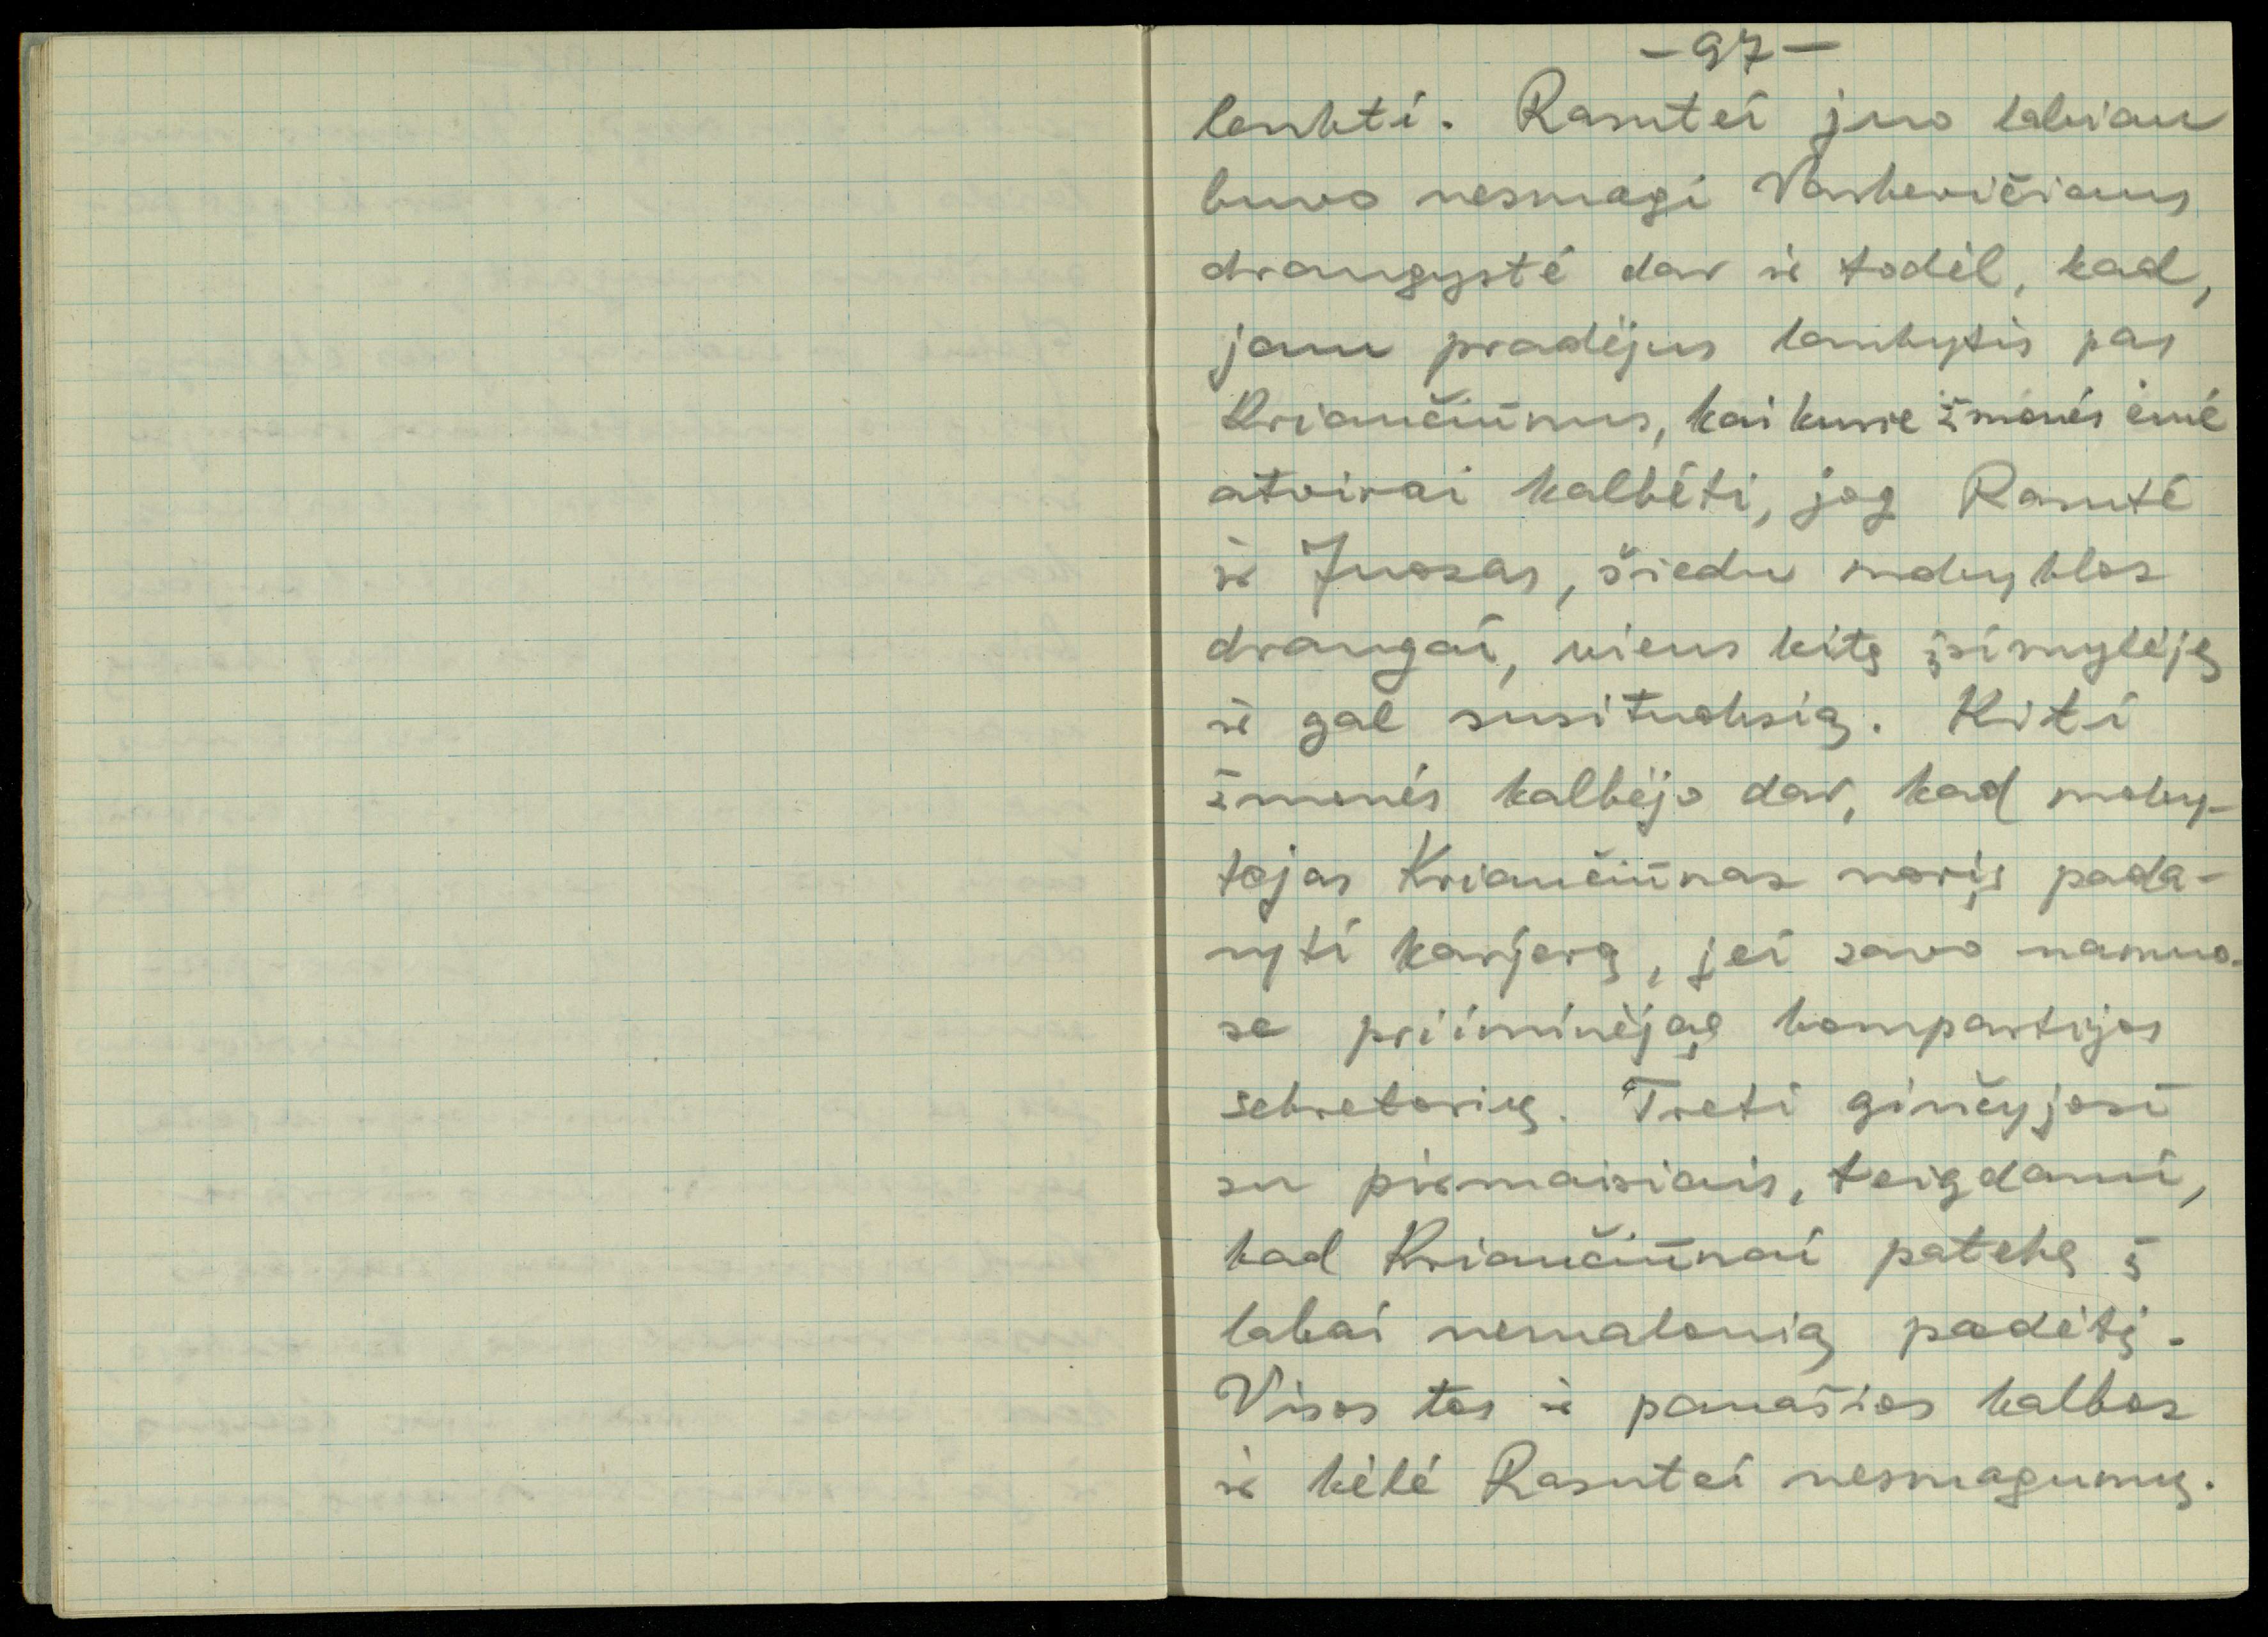 - 97 -
lankti. Rasutei juo labiau
buvo nesmagi Vaskevičiaus
draugystė dar ir todėl, kad,
jam pradėjus lankytis pas
Kriaučiūnus, kai kurie žmonės ėmė
atvirai kalbėti, jog Rasutė
ir Juozas, šiedu mokyklos
draugai, viens kitą įsimylėję
ir gal susituoksią. Kiti
žmonės kalbėjo dar, kad moky-
tojas Kriaučiūnas norįs pada-
ryti karjerą, jei savo namuo-
se priiminėjąs kompartijos
sekretorių. Treti ginčyjosi
su pirmaisiais, teigdami,
kad Kriaučiūnai patekę į
labai nemalonią padėtį.
Visos tos ir panašios kalbos
ir kėlė Rasutei nesmagumų.